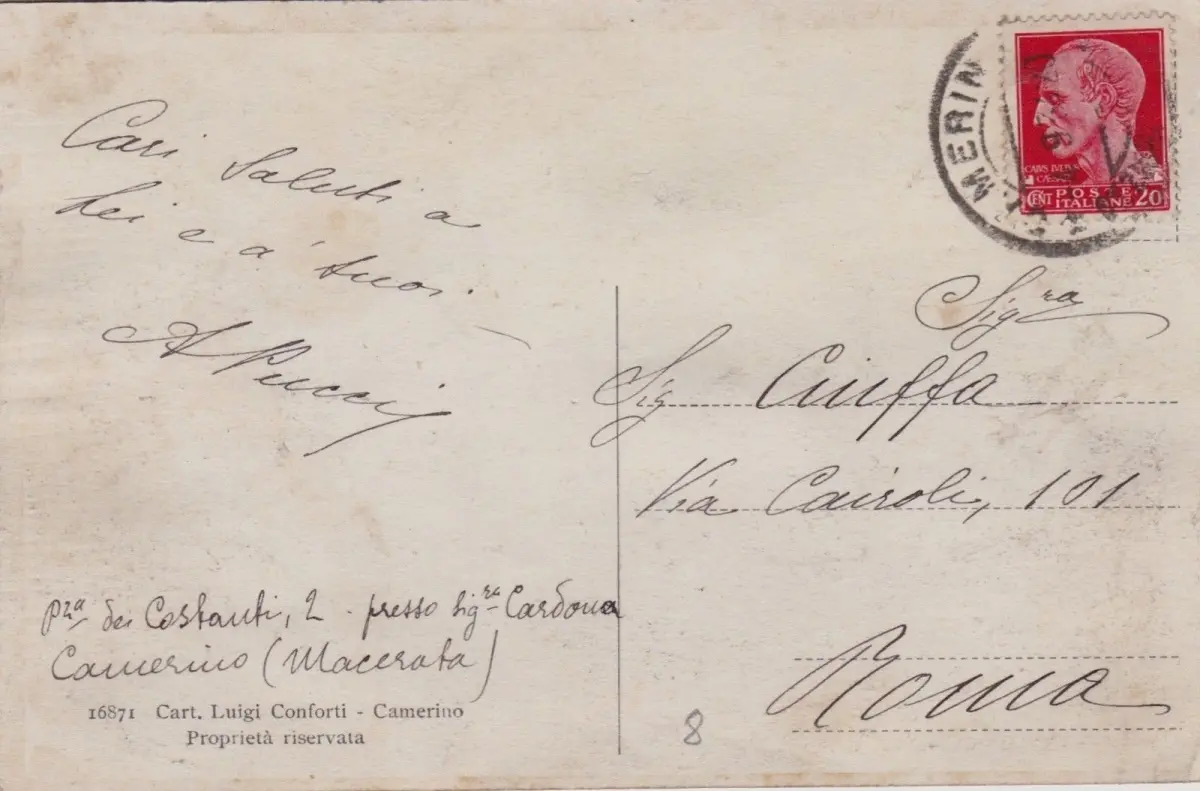 Cari Saluti a
Lei e a' tuoi.
A Pucci
Pza dei Costanti, 2 - presso Sigra Cardona
Camerino (Macerata)
16871 Cart. Luigi Conforti - Camerino
Proprietà riservata
8
MERIN
CAIVS IVLIVS
CAE
CENT POSTE ITALIANE 20
Sigra
Sig Ciuffa
Via Cairoli, 101
Roma